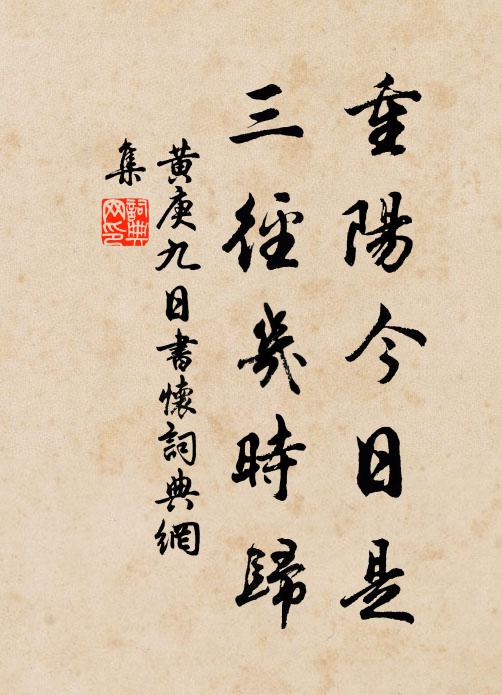 重陽今日是
三徑幾時歸
黃庚九日書懷詞典網
集
詞典
网印